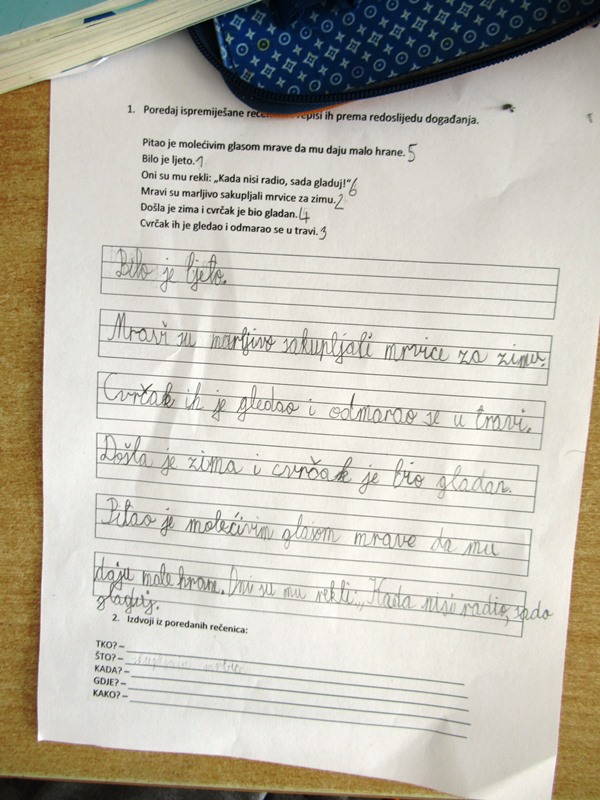 1. Poredaj ispremiješane reče epiši ih prema redoslijedu događanja.
Pitao je molećivim glasom mrave da mu daju malo hrane. 5
Bilo je ljeto. 1
Oni su mu rekli: „Kada nisi radio, sada gladuj!“ 6
Mravi su marljivo sakupljali mrvice za zimu. 2
Došla je zima i cvrčak je bio gladan. 4
Cvrčak ih je gledao i odmarao se u travi. 3
Bilo je ljeto.
Mravi su marljivo sakupljali mrvice za zimu.
Cvrčak ih je gledao i odmarao se u travi.
Došla je zima i cvrčak je bio gladan.
Pitao je molećivim glasom mrave da mu
daju malo hrane. Oni su mu rekli: „Kada nisi radio, sada
gladuj.
2. Izdvoji iz poredanih rečenica:
TKO? –
ŠTO? –
KADA? –
GDJE? –
KAKO? –